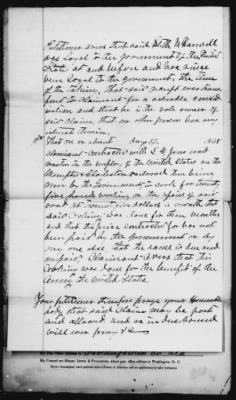 Petitioner avers that said Edith M.
was loyal to the government of the United
State at and before and has since
been loyal to the government, the time
of the taking, That said receipt was trans-
ferred to Claimant for a valuable consid-
eration and that he is the sole owner of
said claim, that no other person has any
interest therein.
That on or about May 15th 186
claimant contracted with L. M. James road
master in the employ of the United States on the
Memphis & Charleston railroad then being
run by the Government, to cook for twenty
five hands working on the repair of said
road at twenty dollars a month, that
said cooking was done for three months
and that the price contracted for has not
been paid by the government or by
any one else that the same is due and
unpaid, Claimant avers that this
cooking was done for the benefit of the
army of the United States
Your petitioner therefore prays your Honorable
body that said Claims may be paid
and allowed and as in duty bound
will ever pray &c
My Counsel are Messrs. Lewis & Fullerton, whose post office address is Washington, D. C.